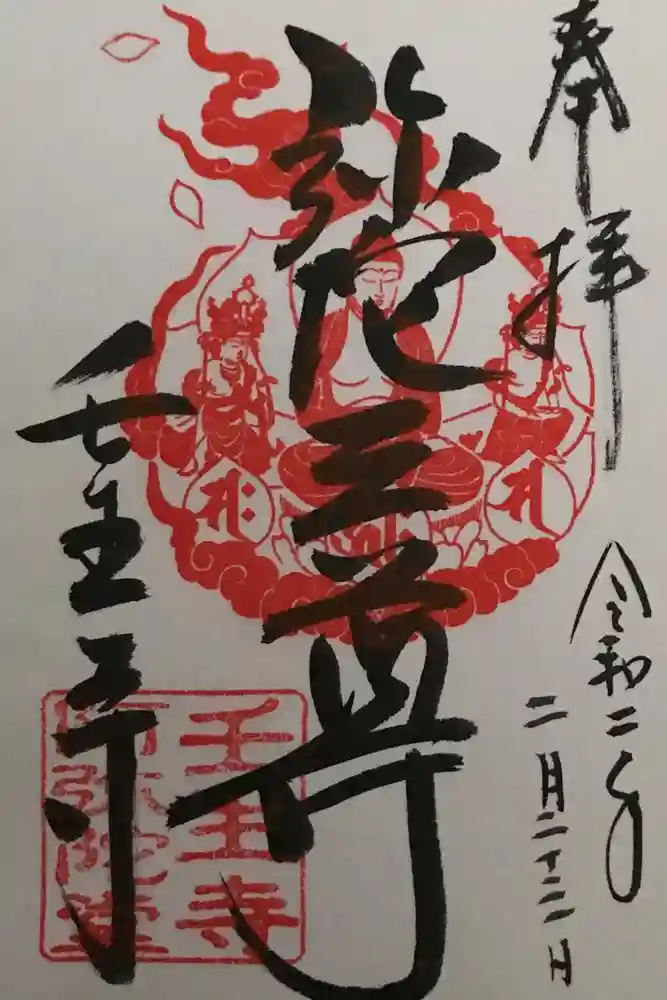 奉拝
令和二年
二月二十二日
弥陀三尊
壬生寺
壬生寺
阿弥陀堂